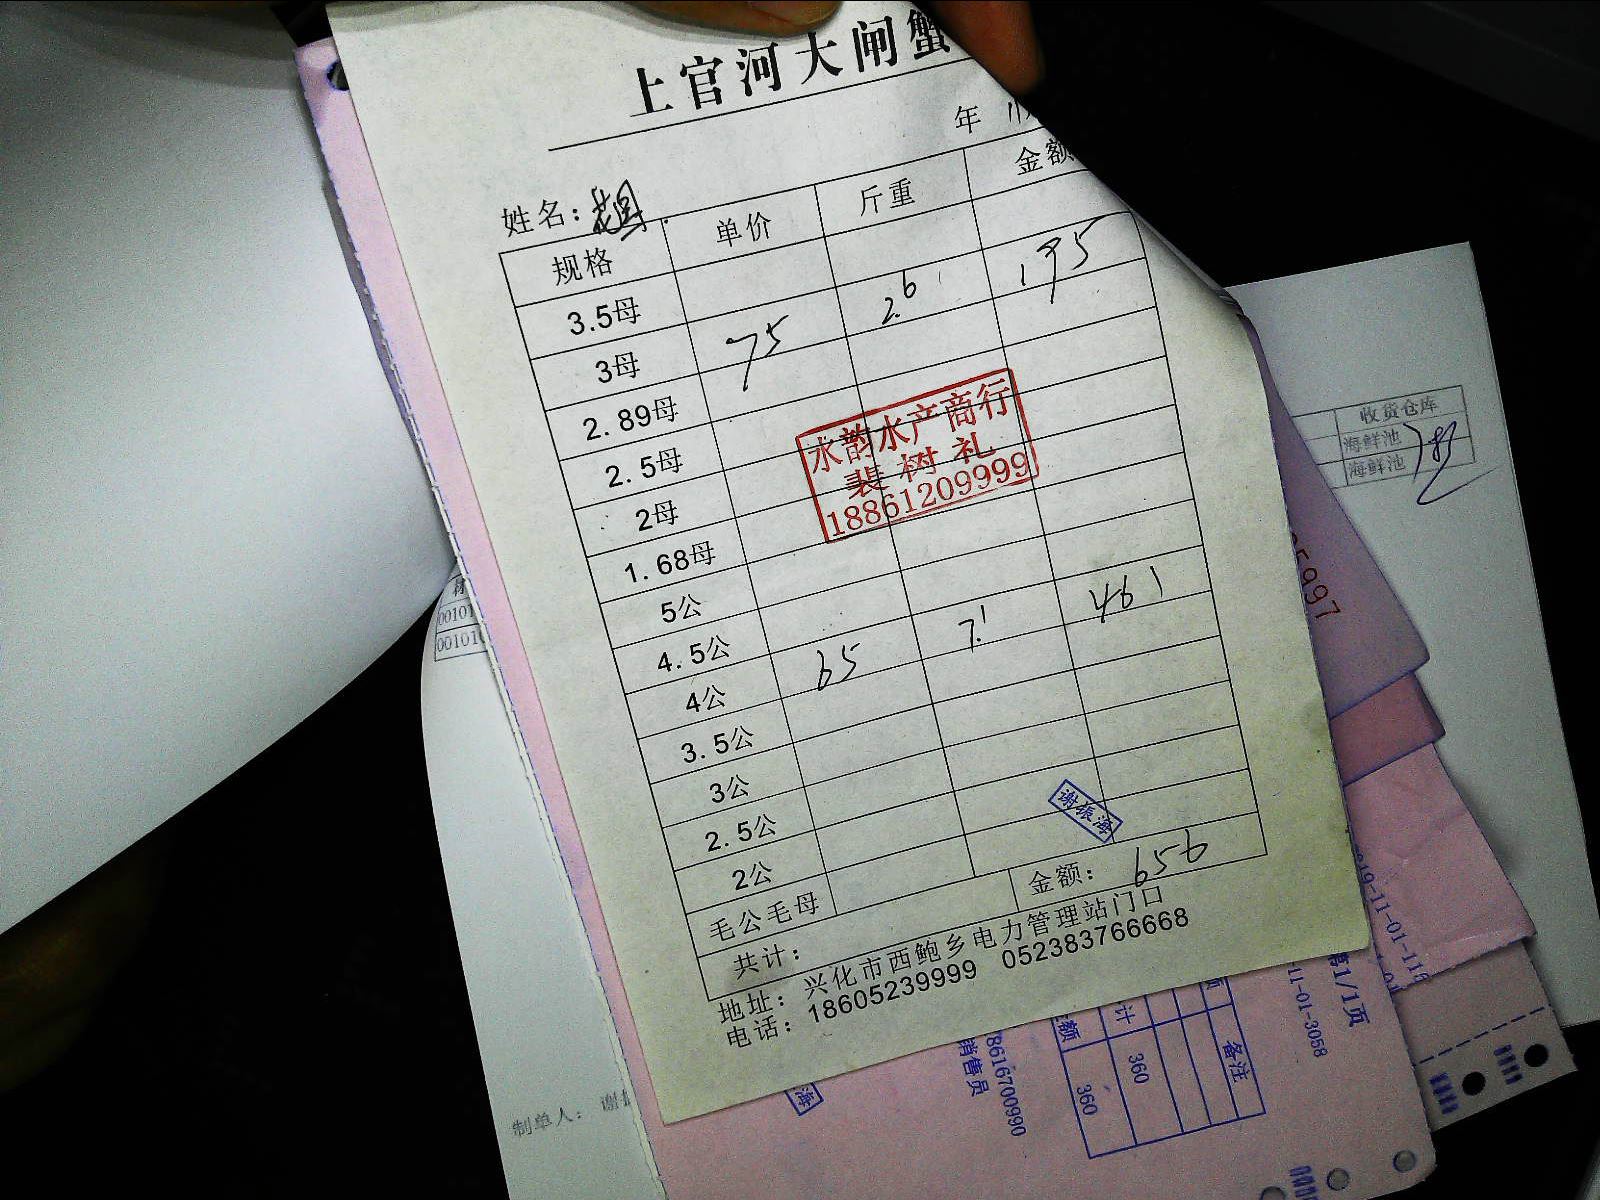 上官河大闸蟹
年
姓名:
规格 单价 斤重 金额
3.5母
3母 75 2.6 195
2.89母
2.5母
2母
1.68母
5公
4.5公
4公 65 7.1 461
3.5公
3公
2.5公
2公
毛公毛母
共计: 金额: 656
地址: 兴化市西鲍乡电力管理站门口
电话: 18605239999 052383766668
水韵水产商行
裴树礼
18861209999
谢振海
收货仓库
海鲜池
海鲜池
00101
00101
制单人: 谢
5997
第1/1页
11-01-3058
备注
计 360
360
销售员
78616700990
海